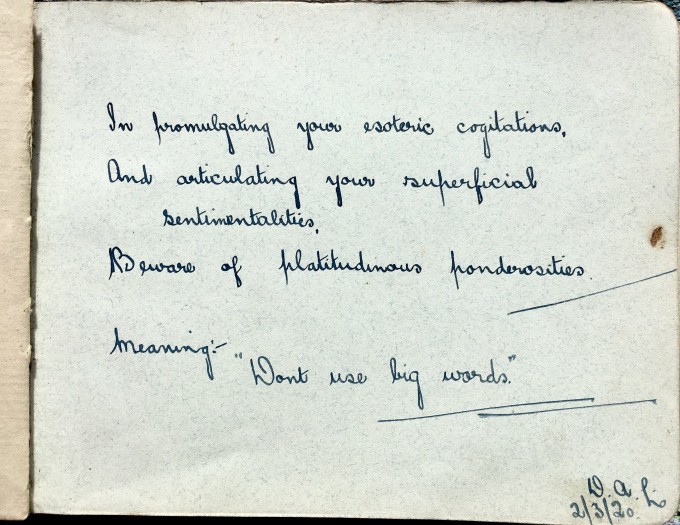 In promulgating your esoteric cogitations,
And articulating your superficial
sentimentalities,
Beware of platitudinous ponderosities.
Meaning:-
"Dont use big words."
D. A. L.
2/3/20.